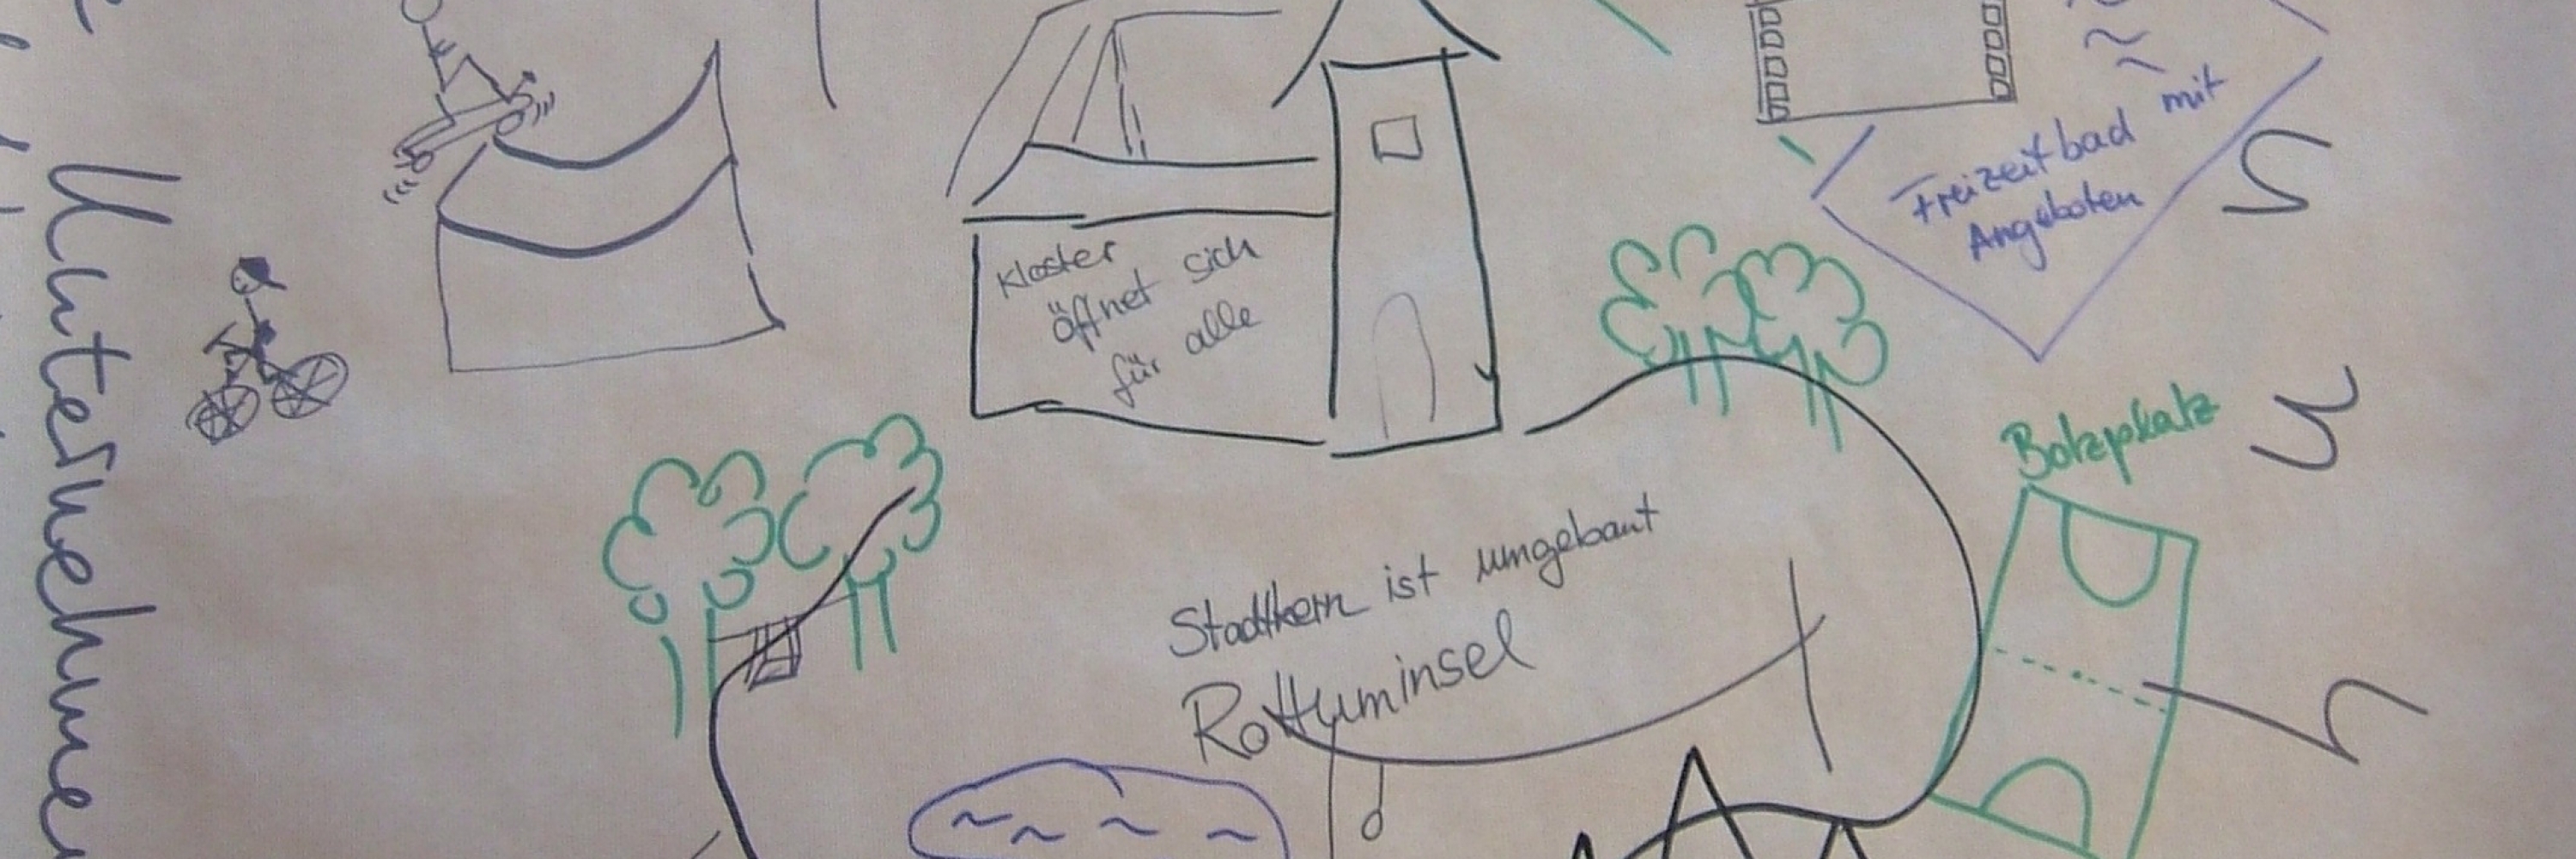 Unternehmen
Freizeitbad mit
Angeboten
Kloster
öffnet sich
für alle
Bolzplatz
Stadtkern ist umgebaut
Rottuminsel